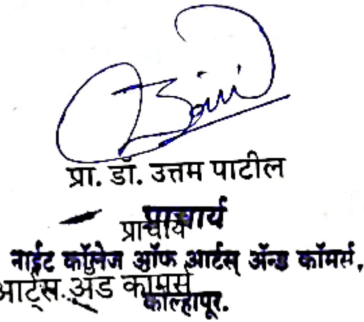 प्रा. डॉ. उत्तम पाटील
प्राचार्य
प्राचार्य
नाईट कॉलेज ऑफ आर्टस् ॲन्ड कॉमर्स,
आर्ट्स अँड कॉमर्स
कोल्हापूर.